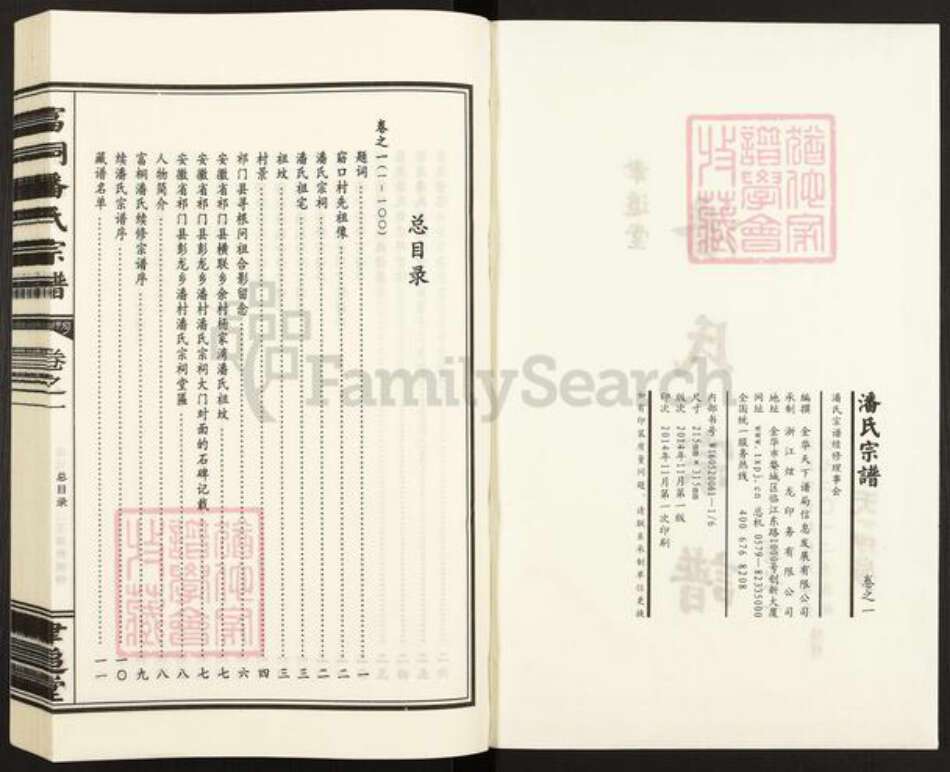 潘氏宗譜 卷之一
潘氏宗谱续修理事会
编撰 金华天下谱局信息发展有限公司
承制 浙江炫龙印务有限公司
地址 金华市婺城区临江东路1000号创新大厦
网址 www.1spj.cn 总机 0579-82335000
全国统一服务热线 400 676 8208
内部书号 W160520061—1/6
尺寸 215mm×315mm
版次 2014年11月第一版
印次 2014年11月第一次印刷
如有印装质量问题，请联系承制单位更换
收藏
譜學會
FamilySearch
总目录
卷之一(一-一〇〇)
题词 一
窑口村先祖像 二
潘氏宗祠 二
潘氏祖宅 三
祖坟 三
村景 四
祁门县寻根问祖合影留念 六
安徽省祁门县横联乡余村杨家湾潘氏祖坟 七
安徽省祁门县彭龙乡潘村潘氏宗祠大门对面的石碑记载 七
安徽省祁门县彭龙乡潘村潘氏宗祠堂匾 八
人物简介 八
富桐潘氏续修宗谱序 九
续潘氏宗谱序 一〇
藏谱名单 一一
富桐潘氏宗譜
卷之一
总目录